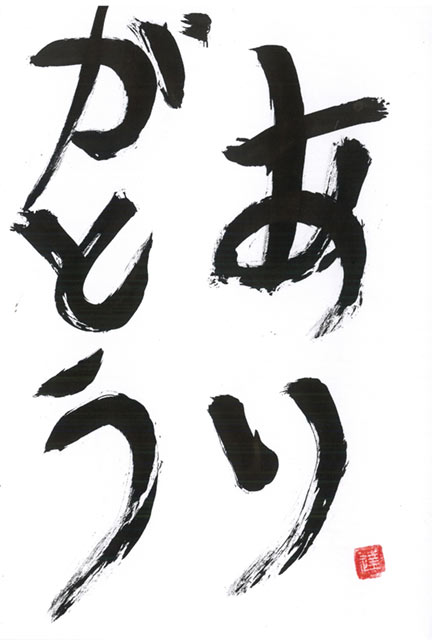 あり
がとう